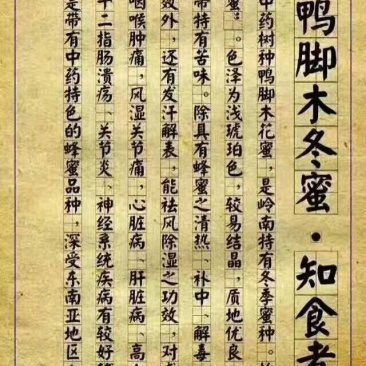 鸭脚木冬蜜·知食者
中药树种鸭脚木花蜜，是岭南特有冬季蜜种。
蜜。。色泽为浅琥珀色，较易结晶，质地优良
带特有苦味。除具有蜂蜜之清热、补中、解毒
效外，还有发汗解表，能祛风除湿之功效，对
咽喉肿痛，风湿关节痛，心脏病、肝脏病、高
十二指肠溃疡、关节炎、神经系统疾病有较好
是带有中药特色的蜂蜜品种，深受东南亚地区